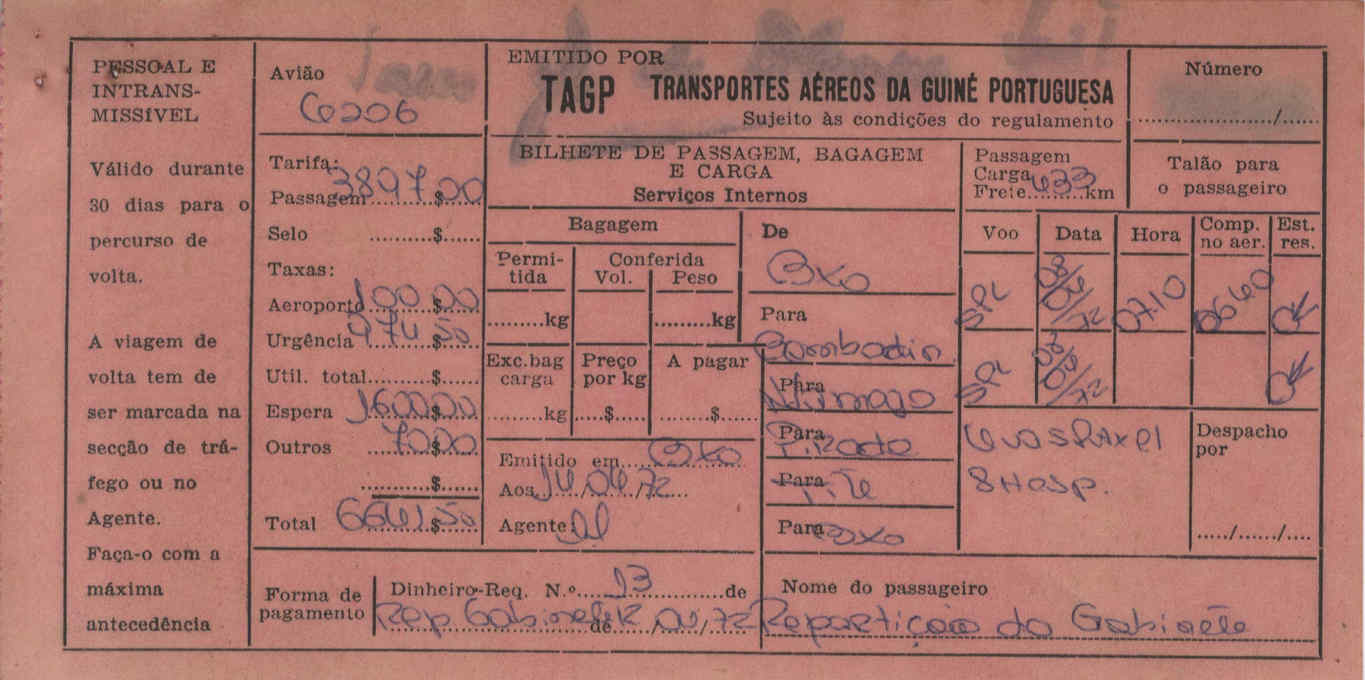 PESSOAL E
INTRANS-
MISSÍVEL
Válido durante
30 dias para o
percurso de
volta.
A viagem de
volta tem de
ser marcada na
secção de trá-
fego ou no
Agente.
Faça-o com a
máxima
antecedência
Avião
C206
Tarifa:
Passagem 3897$00
Selo ..........$......
Taxas:
Aeroporto 100$00
Urgência 974$50
Util. total..........$......
Espera 1600$00
Outros 70$00
..........$......
Total 6641$50
EMITIDO POR
TAGP TRANSPORTES AÉREOS DA GUINÉ PORTUGUESA
Sujeito às condições do regulamento
Número
....................../......
BILHETE DE PASSAGEM, BAGAGEM
E CARGA
Serviços Internos
Passagem
Carga
Frete 433 km
Talão para
o passageiro
Bagagem
Permi-
tida
Conferida
Vol. Peso
.........kg .........kg
Exc.bag
carga
Preço
por kg
A pagar
........kg ....$..... ........$.....
Emitido em Bxo
Aos 14/04/72
Agente
De
Bxo
Para
Para
Para
Para
Para Bxo
Voo Data Hora Comp.
no aer. Est.
res.
SPL 08/04/72 0710 0640 OK
SPL 08/04/72 OK
8 Hosp.
Despacho
por
...../....../....
Forma de
pagamento
Dinheiro-Req. N.º 13 de
Rep Gabinete de /72
Nome do passageiro
Repartição do Gabinete